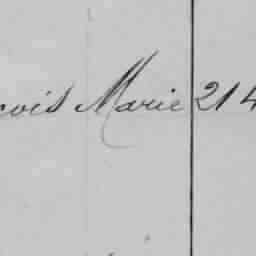 cois Marie 214